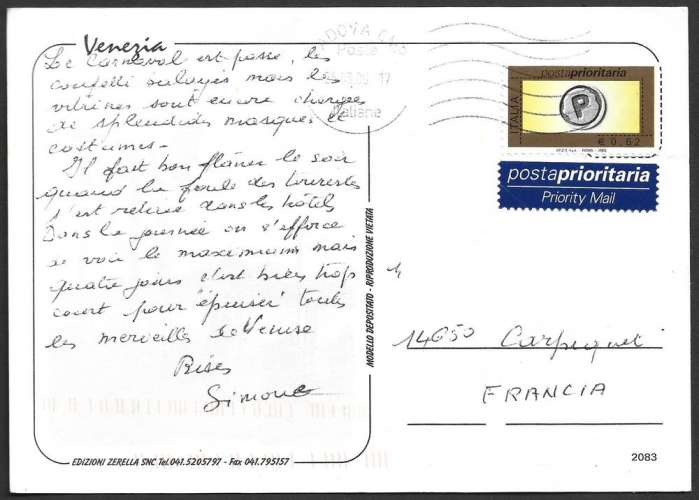 Venezia
Le Carnaval est passé, les
confetti balayés mais les
vitrines sont encore chargées
de splendides masques et
costumes.
Il fait bon flâner le soir
quand la foule des touristes
s'est retirée dans les hôtels
Dans la journée on s'efforce
de voir le maximum mais
quatre jours c'est bien trop
court pour "épuiser" toutes
les merveilles de Venise
Bises
Simone
EDIZIONI ZERELLA SNC Tel.041.5205797 - Fax 041.795157
MODELLO DEPOSITATO - RIPRODUZIONE VIETATA
PADOVA
Poste
Italiane
17
postaprioritaria
ITALIA
P
€ 0,62
postaprioritaria
Priority Mail
14650 Carpiquet
FRANCIA
2083